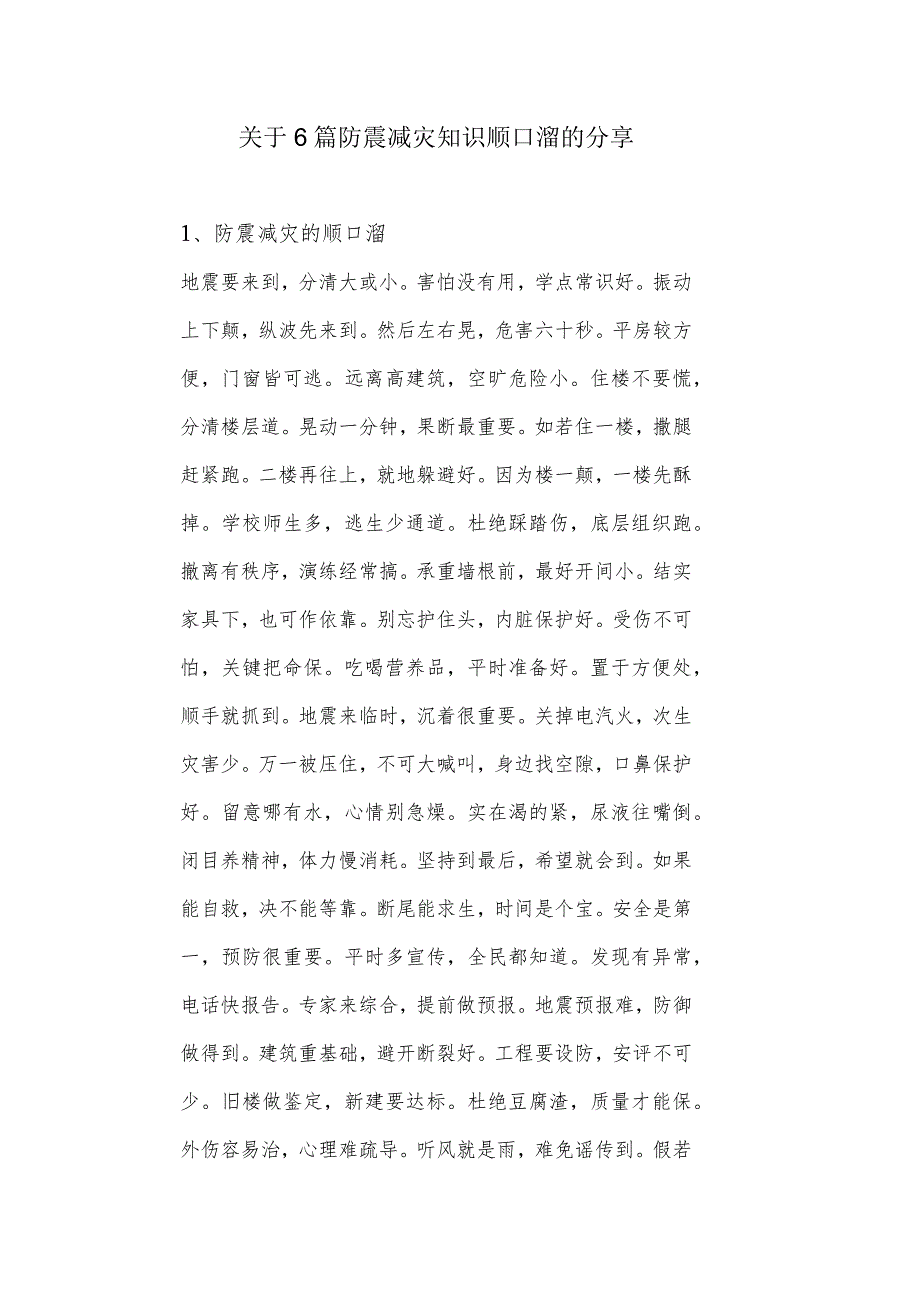 关于6篇防震减灾知识顺口溜的分享
1、防震减灾的顺口溜
地震要来到，分清大或小。害怕没有用，学点常识好。振动
上下颠，纵波先来到。然后左右晃，危害六十秒。平房较方
便，门窗皆可逃。远离高建筑，空旷危险小。住楼不要慌，
分清楼层道。晃动一分钟，果断最重要。如若住一楼，撒腿
赶紧跑。二楼再往上，就地躲避好。因为楼一颠，一楼先酥
掉。学校师生多，逃生少通道。杜绝踩踏伤，底层组织跑。
撤离有秩序，演练经常搞。承重墙根前，最好开间小。结实
家具下，也可作依靠。别忘护住头，内脏保护好。受伤不可
怕，关键把命保。吃喝营养品，平时准备好。置于方便处，
顺手就抓到。地震来临时，沉着很重要。关掉电汽火，次生
灾害少。万一被压住，不可大喊叫，身边找空隙，口鼻保护
好。留意哪有水，心情别急燥。实在渴的紧，尿液往嘴倒。
闭目养精神，体力慢消耗。坚持到最后，希望就会到。如果
能自救，决不能等靠。断尾能求生，时间是个宝。安全是第
一，预防很重要。平时多宣传，全民都知道。发现有异常，
电话快报告。专家来综合，提前做预报。地震预报难，防御
做得到。建筑重基础，避开断裂好。工程要设防，安评不可
少。旧楼做鉴定，新建要达标。杜绝豆腐渣，质量才能保。
外伤容易治，心理难疏导。听风就是雨，难免谣传到。假若